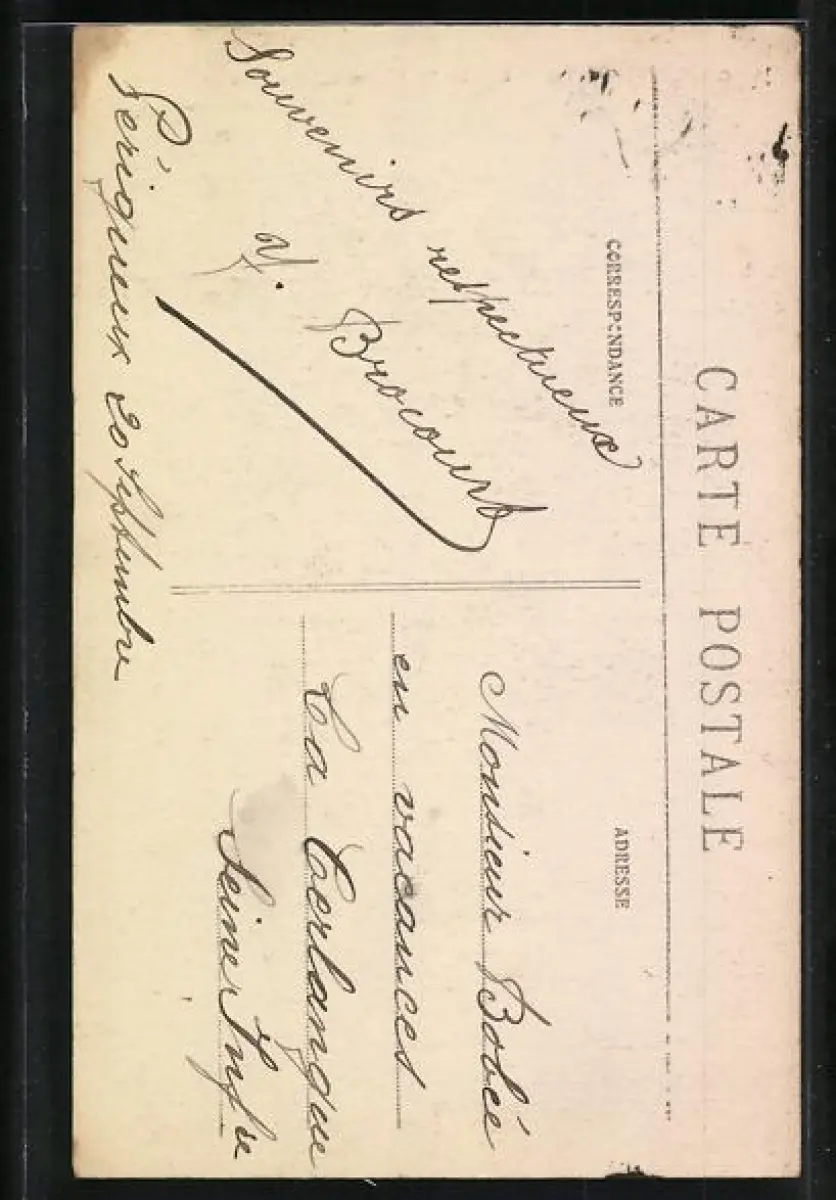 CARTE POSTALE
CORRESPONDANCE
Souvenirs respectueux
Y. Brocourt
Périgueux 20 Septembre
ADRESSE
Monsieur Bobée
en vacances
La Cerlangue
Seine Infre